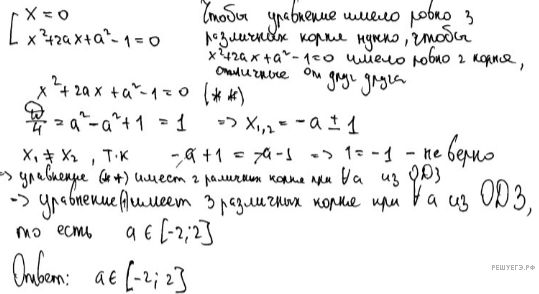 [ x = 0
x²+2ax+a²-1=0
Чтобы уравнение имело ровно 3
различных корня нужно, чтобы
x²+2ax+a²-1=0 имело ровно 2 корня,
отличные от друг друга
x²+2ax+a²-1=0 (**)
D/4 = a²-a²+1 = 1 => x₁,₂ = -a ± 1
x₁ ≠ x₂, т.к -a+1 = -a-1 => 1=-1 - неверно
=> уравнение (**) имеет 2 различных корня при ∀a из ОДЗ
=> уравнение имеет 3 различных корня при ∀a из ОДЗ,
то есть a ∈ [-2;2]
Ответ: a ∈ [-2; 2]
РЕШУЕГЭ.РФ